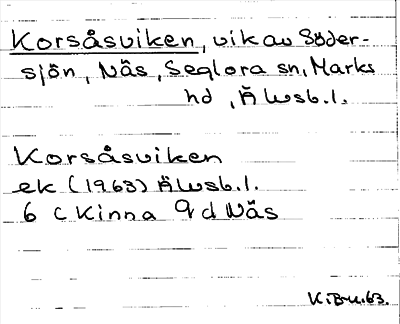 Korsåsviken, vik av Söder-
sjön, Näs, Seglora sn, Marks
hd, Älvsb. l.
Korsåsviken
ek (1963) Älvsb. l.
6 c Kinna 9 d Näs
K. Bm. 63.